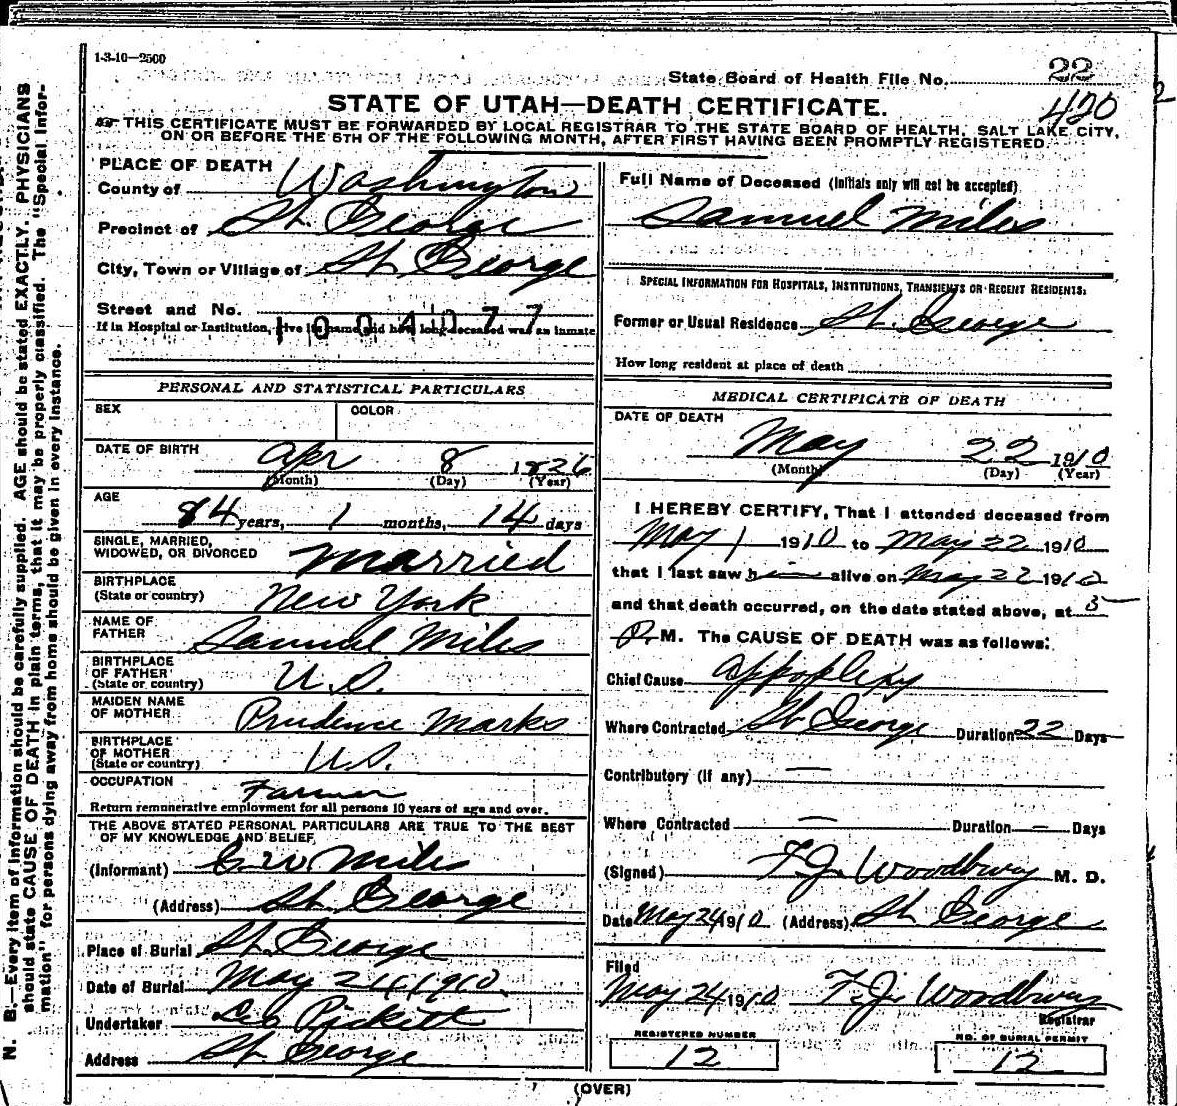 1-3-10—2500
State Board of Health File No. 22
420
STATE OF UTAH—DEATH CERTIFICATE.
THIS CERTIFICATE MUST BE FORWARDED BY LOCAL REGISTRAR TO THE STATE BOARD OF HEALTH, SALT LAKE CITY,
ON OR BEFORE THE 5TH OF THE FOLLOWING MONTH, AFTER FIRST HAVING BEEN PROMPTLY REGISTERED.
PLACE OF DEATH
County of Washington
Precinct of St. George
City, Town or Village of St. George
Street and No.
1004077
If in Hospital or Institution, give its name and how long deceased was an inmate
PERSONAL AND STATISTICAL PARTICULARS
SEX
COLOR
DATE OF BIRTH Apr 8 1826
(Month) (Day) (Year)
AGE
84 years, 1 months, 14 days
SINGLE, MARRIED,
WIDOWED, OR DIVORCED Married
BIRTHPLACE
(State or country) New York
NAME OF
FATHER Samuel Miles
BIRTHPLACE
OF FATHER
(State or country) U.S.
MAIDEN NAME
OF MOTHER Prudence Marks
BIRTHPLACE
OF MOTHER
(State or country) U.S.
OCCUPATION Farmer
Return remunerative employment for all persons 10 years of age and over.
THE ABOVE STATED PERSONAL PARTICULARS ARE TRUE TO THE BEST
OF MY KNOWLEDGE AND BELIEF,
(Informant) Miles
(Address) St. George
Place of Burial St. George
Date of Burial May 24 1910
Undertaker Pickett
Address St. George
Full Name of Deceased (Initials only will not be accepted)
Samuel Miles
SPECIAL INFORMATION FOR HOSPITALS, INSTITUTIONS, TRANSIENTS OR RECENT RESIDENTS.
Former or Usual Residence St. George
How long resident at place of death
MEDICAL CERTIFICATE OF DEATH
DATE OF DEATH
May 22 1910
(Month) (Day) (Year)
I HEREBY CERTIFY, That I attended deceased from
May 1 1910 to May 22 1910
that I last saw him alive on May 22 1910
and that death occurred, on the date stated above, at
P. M. The CAUSE OF DEATH was as follows:
Chief Cause Appoplexy
Where Contracted St George Duration 22 Days
Contributory (if any) —
Where Contracted — Duration — Days
(Signed) F.J. Woodbury M. D.
Date May 24 1910 (Address) St. George
Filed
May 24 1910 F.J. Woodbury
Registrar
REGISTERED NUMBER
12
NO. OF BURIAL PERMIT
12
(OVER)
N. B.—Every item of information should be carefully supplied. AGE should be stated EXACTLY. PHYSICIANS
should state CAUSE OF DEATH in plain terms, that it may be properly classified. The "Special Infor-
mation" for persons dying away from home should be given in every instance.